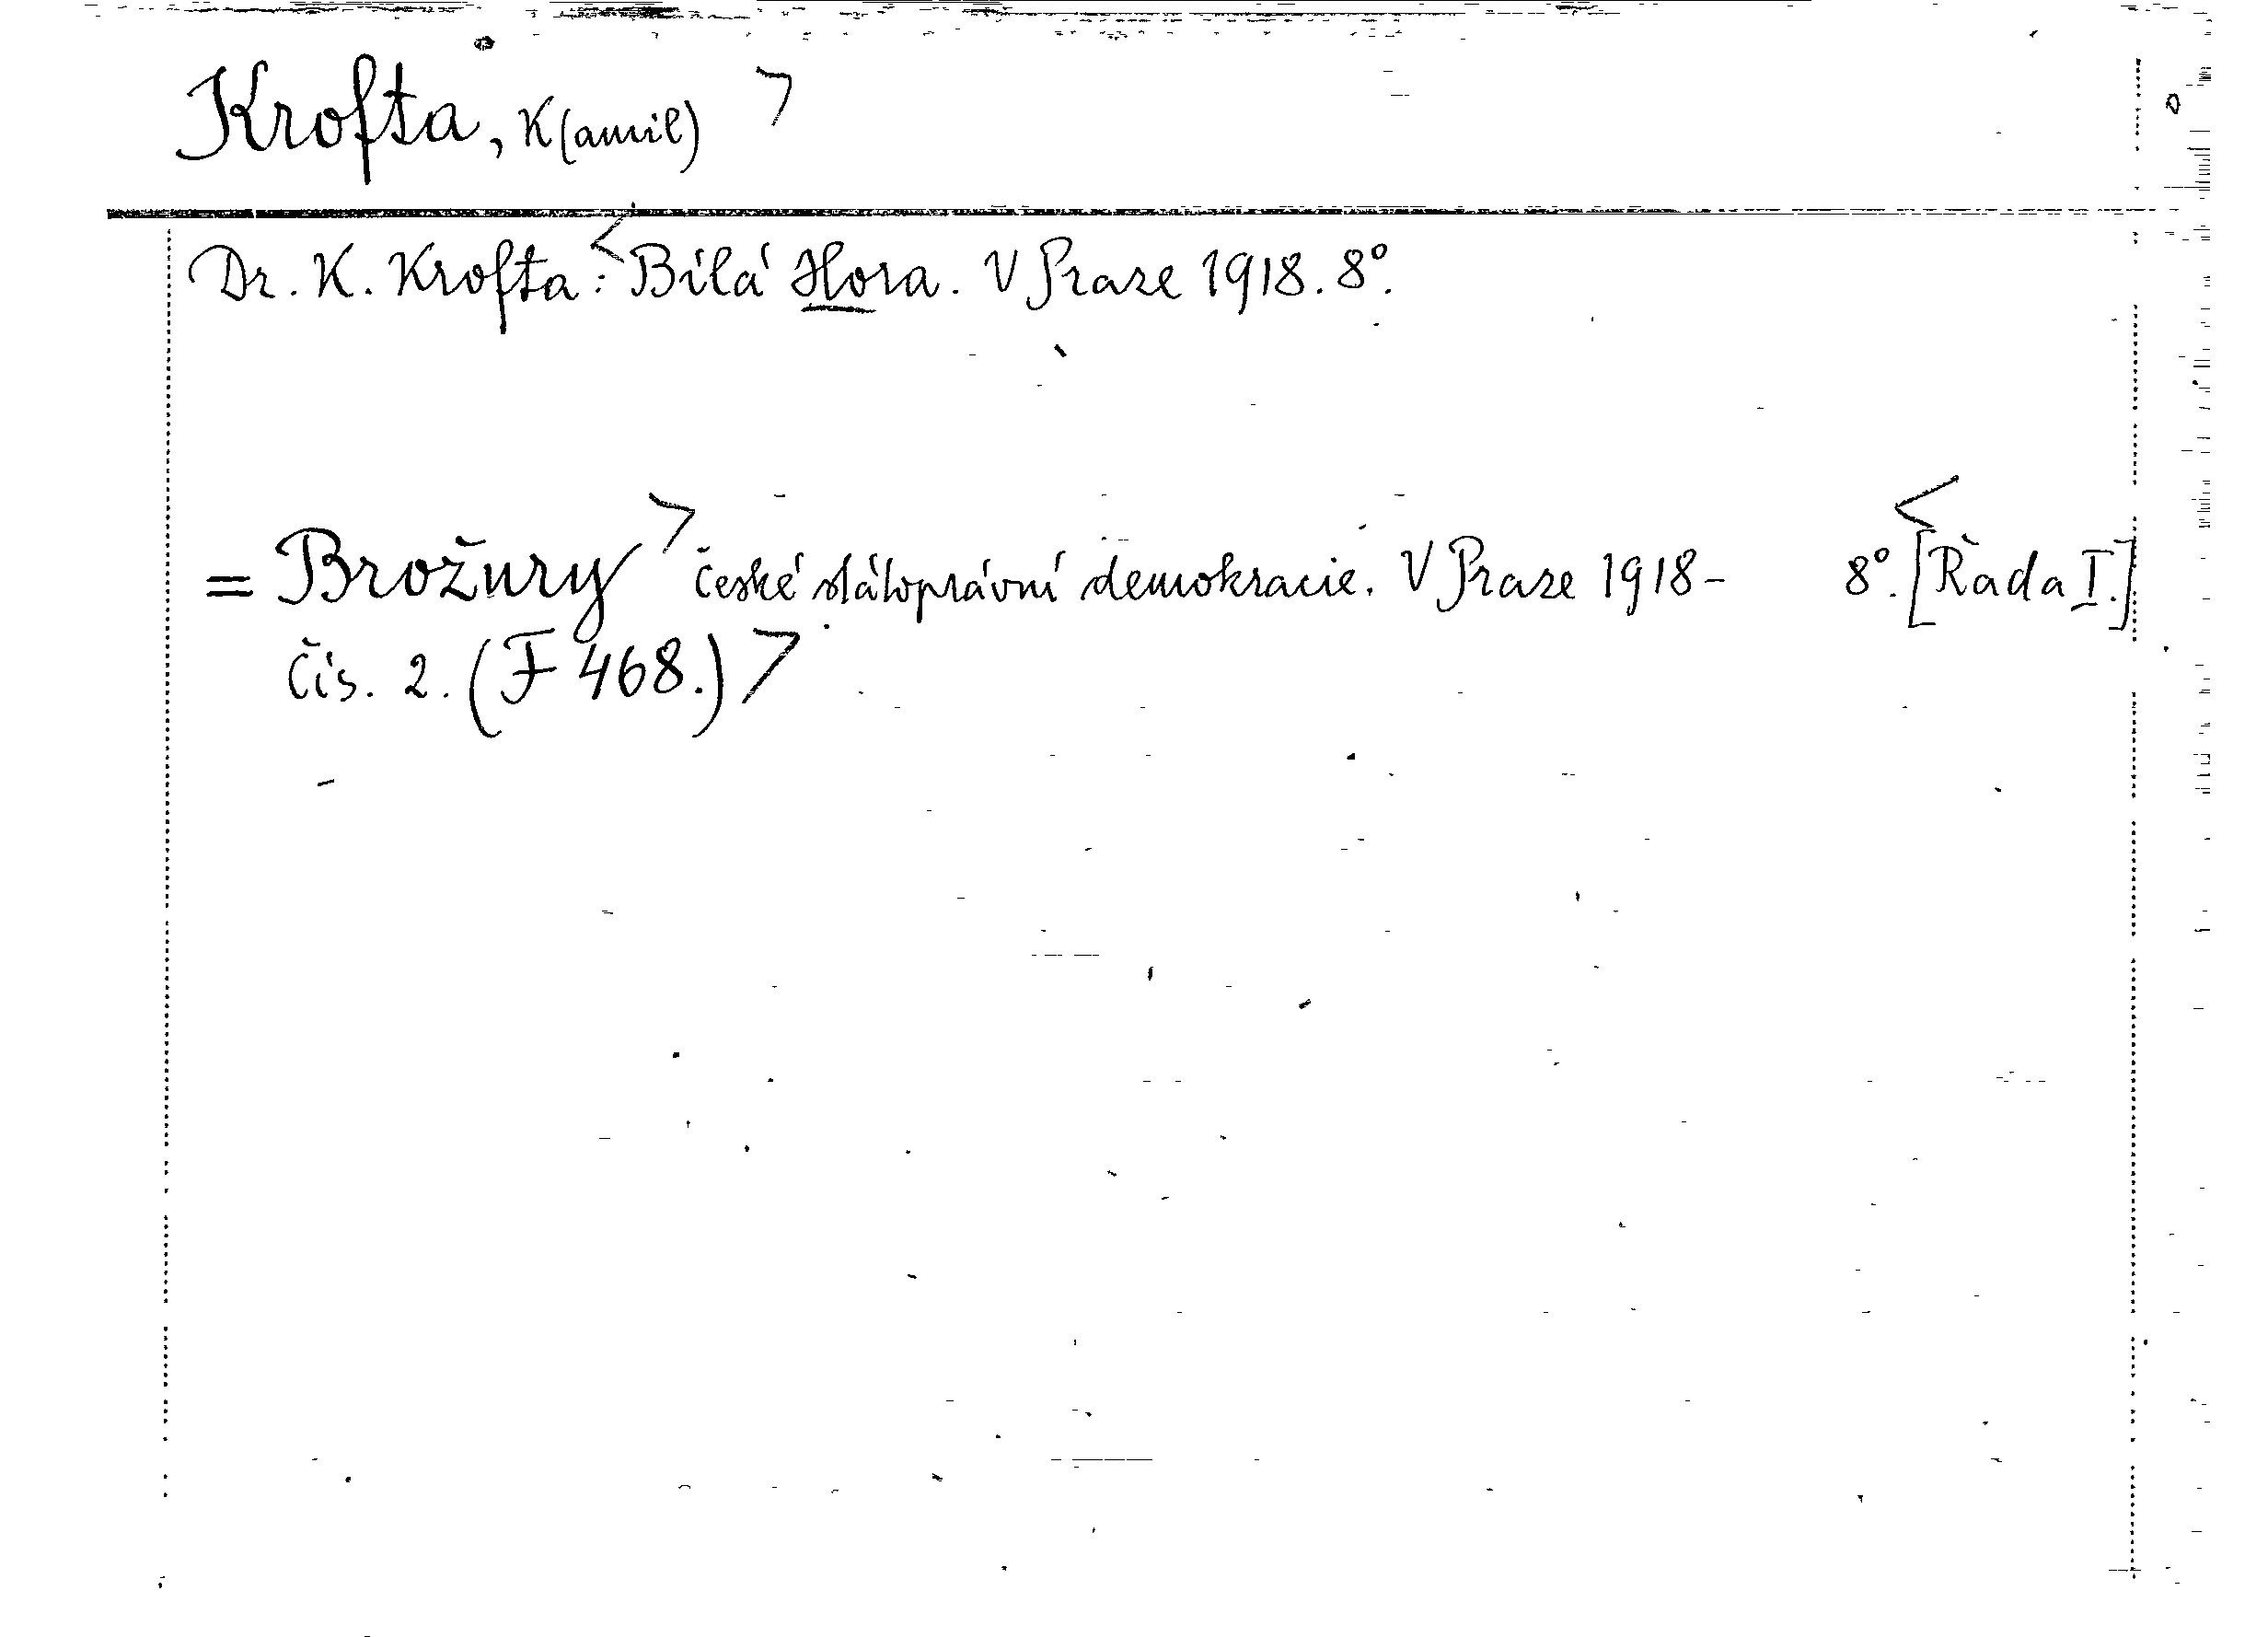 Krofta, K(amil) >
Dr. K. Krofta: < Bílá Hora. V Praze 1918. 8°.
= Brožury > české státoprávní demokracie. V Praze 1918- 8°. < [Řada I.]
čís. 2. (F 468.) >